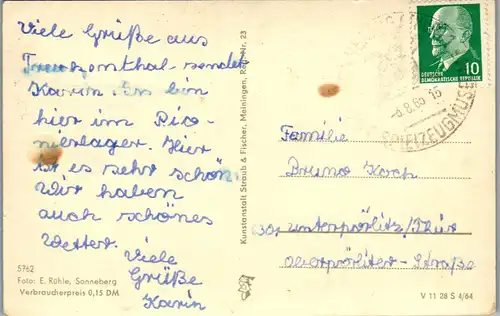 Viele Grüße aus
sendet
Karin. Ich bin
hier im Pio-
nierlager. Hier
ist es sehr schön.
Wir haben
auch schönes
Wetter. Viele
Grüße
Karin
5762
Foto: E. Rühle, Sonneberg
Verbraucherpreis 0,15 DM
Kunstanstalt Straub & Fischer, Meiningen, Nr. 23
10
DEUTSCHE
DEMOKRATISCHE REPUBLIK
-8.8.65 15
SPIELZEUGMUSE
Familie
Bruno Koch
630 Unterpörlitz/Thür
Oberpörlitzer-Straße
V 11 28 S 4/64